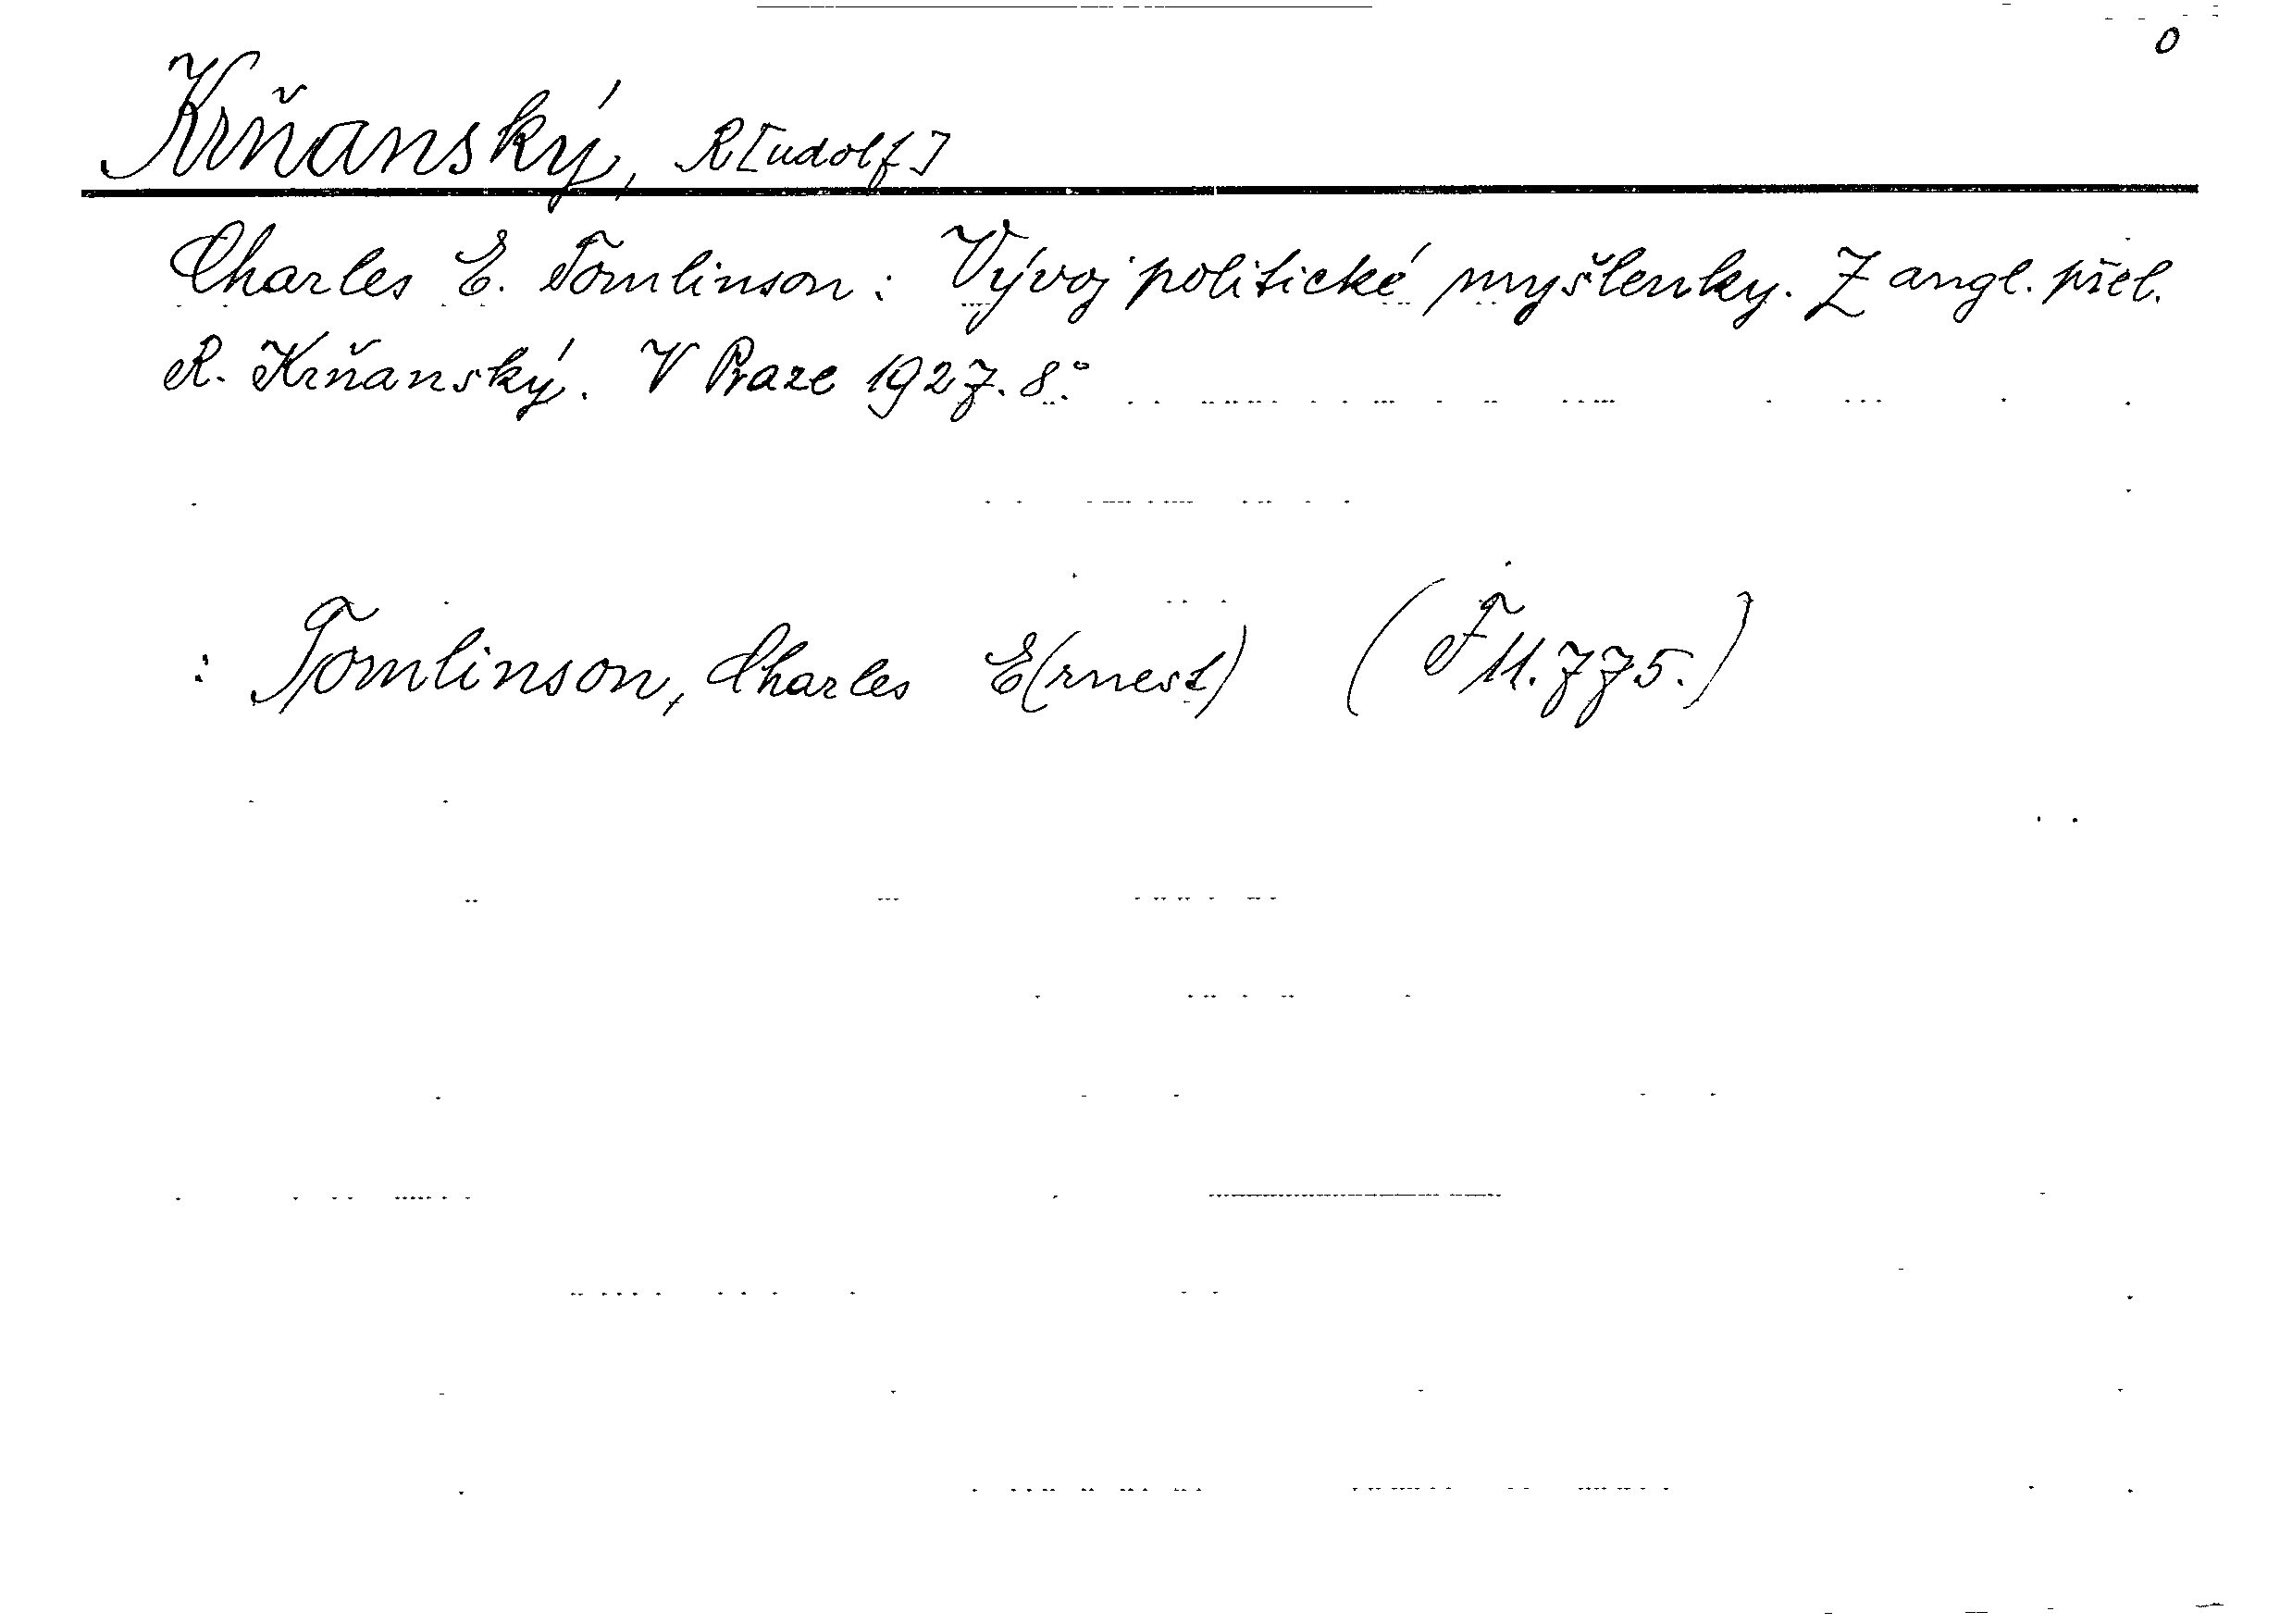 0
Krňanský, R[udolf]
Charles E. Tomlinson: Vývoj politické myšlenky. Z angl. přel.
R. Krňanský. V Praze 1927. 8.°
: Tomlinson, Charles E(rnest) (F 11.775.)